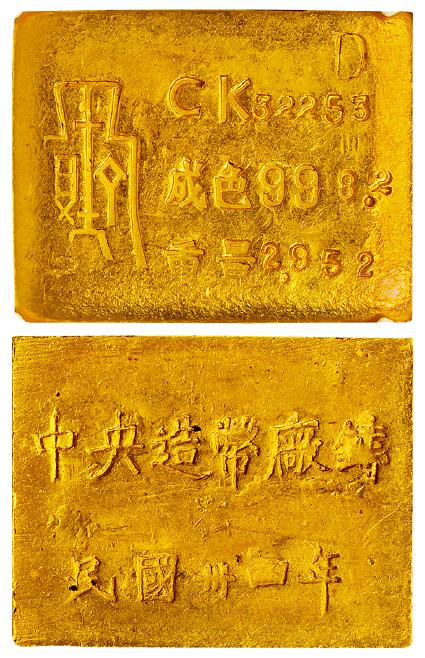 D
CK32253
成色998.2
重量2.952
中央造幣廠鑄
民國卅四年